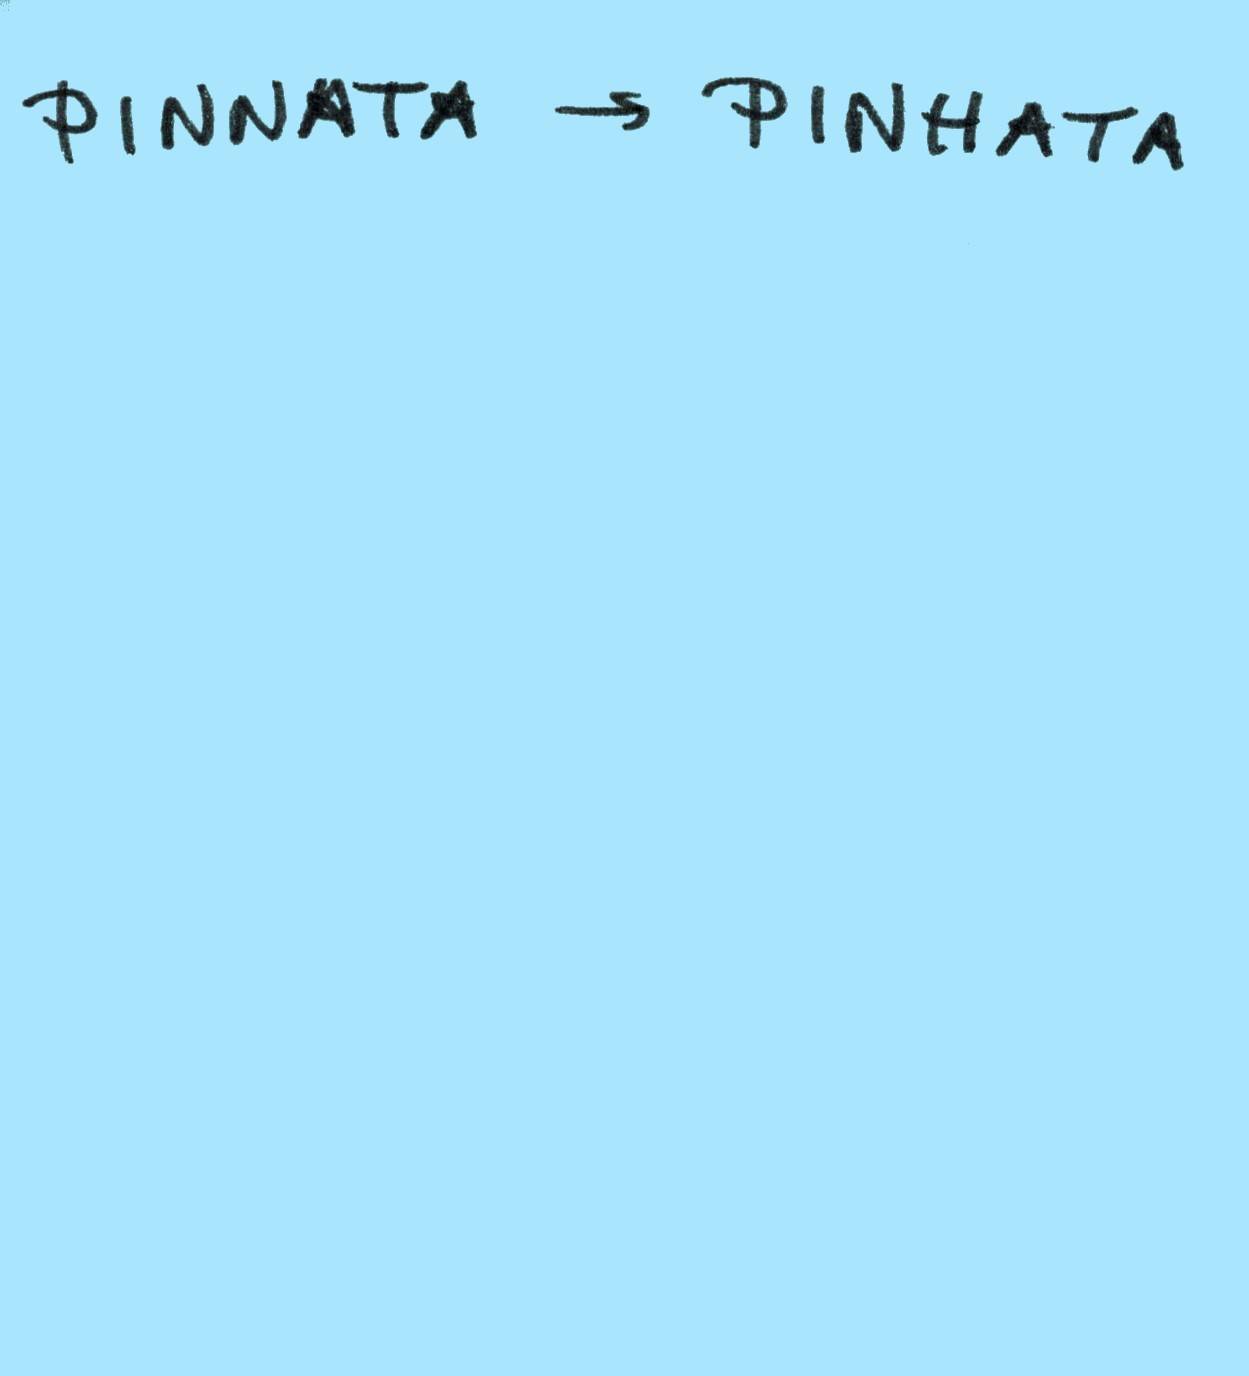 PINNATA → PINHATA